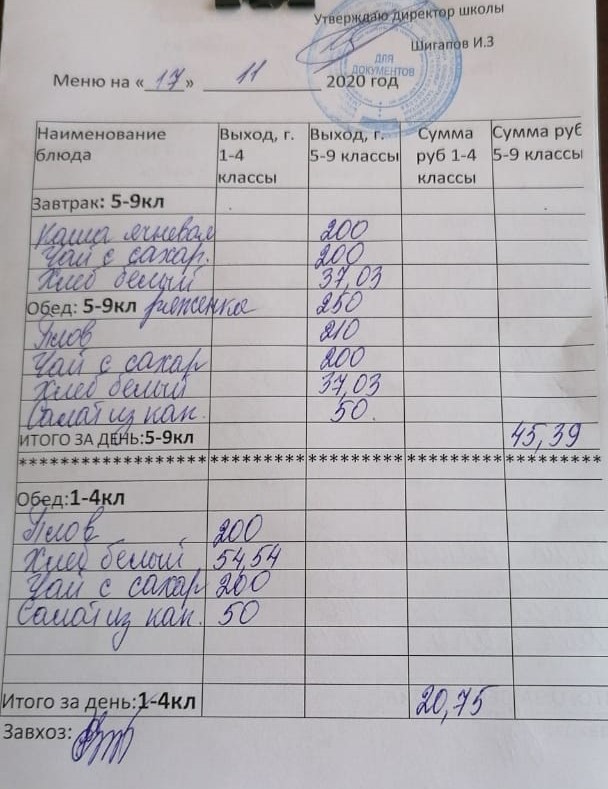 Утверждаю директор школы
Шигапов И.З
ДЛЯ ДОКУМЕНТОВ
Меню на «17» 11 2020 год
Наименование блюда Выход, г. 1-4 классы Выход, г. 5-9 классы Сумма руб 1-4 классы Сумма руб 5-9 классы
Завтрак: 5-9кл
Каша ячневая 200
Чай с сахар. 200
Хлеб белый 37,03
Обед: 5-9кл ряженка 250
Плов 210
Чай с сахар 200
Хлеб белый 37,03
Салат из кап. 50.
ИТОГО ЗА ДЕНЬ:5-9кл 45,39
Обед:1-4кл
Плов 200
Хлеб белый 54,54
Чай с сахар 200
Салат из кап. 50
Итого за день:1-4кл 20,75
Завхоз: